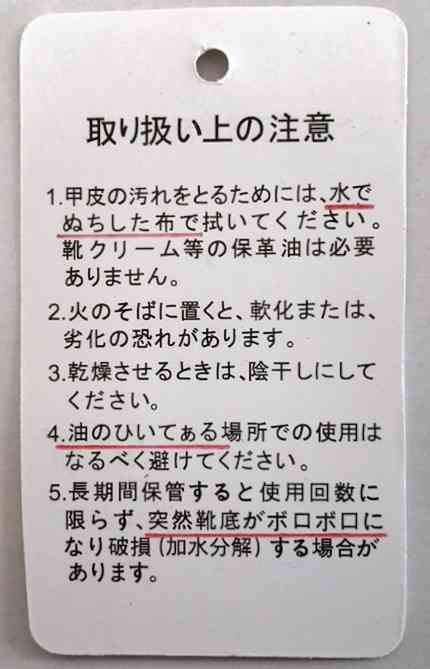 取り扱い上の注意
1.甲皮の汚れをとるためには、水で
ぬちした布で拭いてください。
靴クリーム等の保革油は必要
ありません。
2.火のそばに置くと、軟化または、
劣化の恐れがあります。
3.乾燥させるときは、陰干しにして
ください。
4.油のひいてぁる場所での使用は
なるべく避けてください。
5.長期間保管すると使用回数に
限らず、突然靴底がボロボロに
なり破損(加水分解)する場合が
あります。